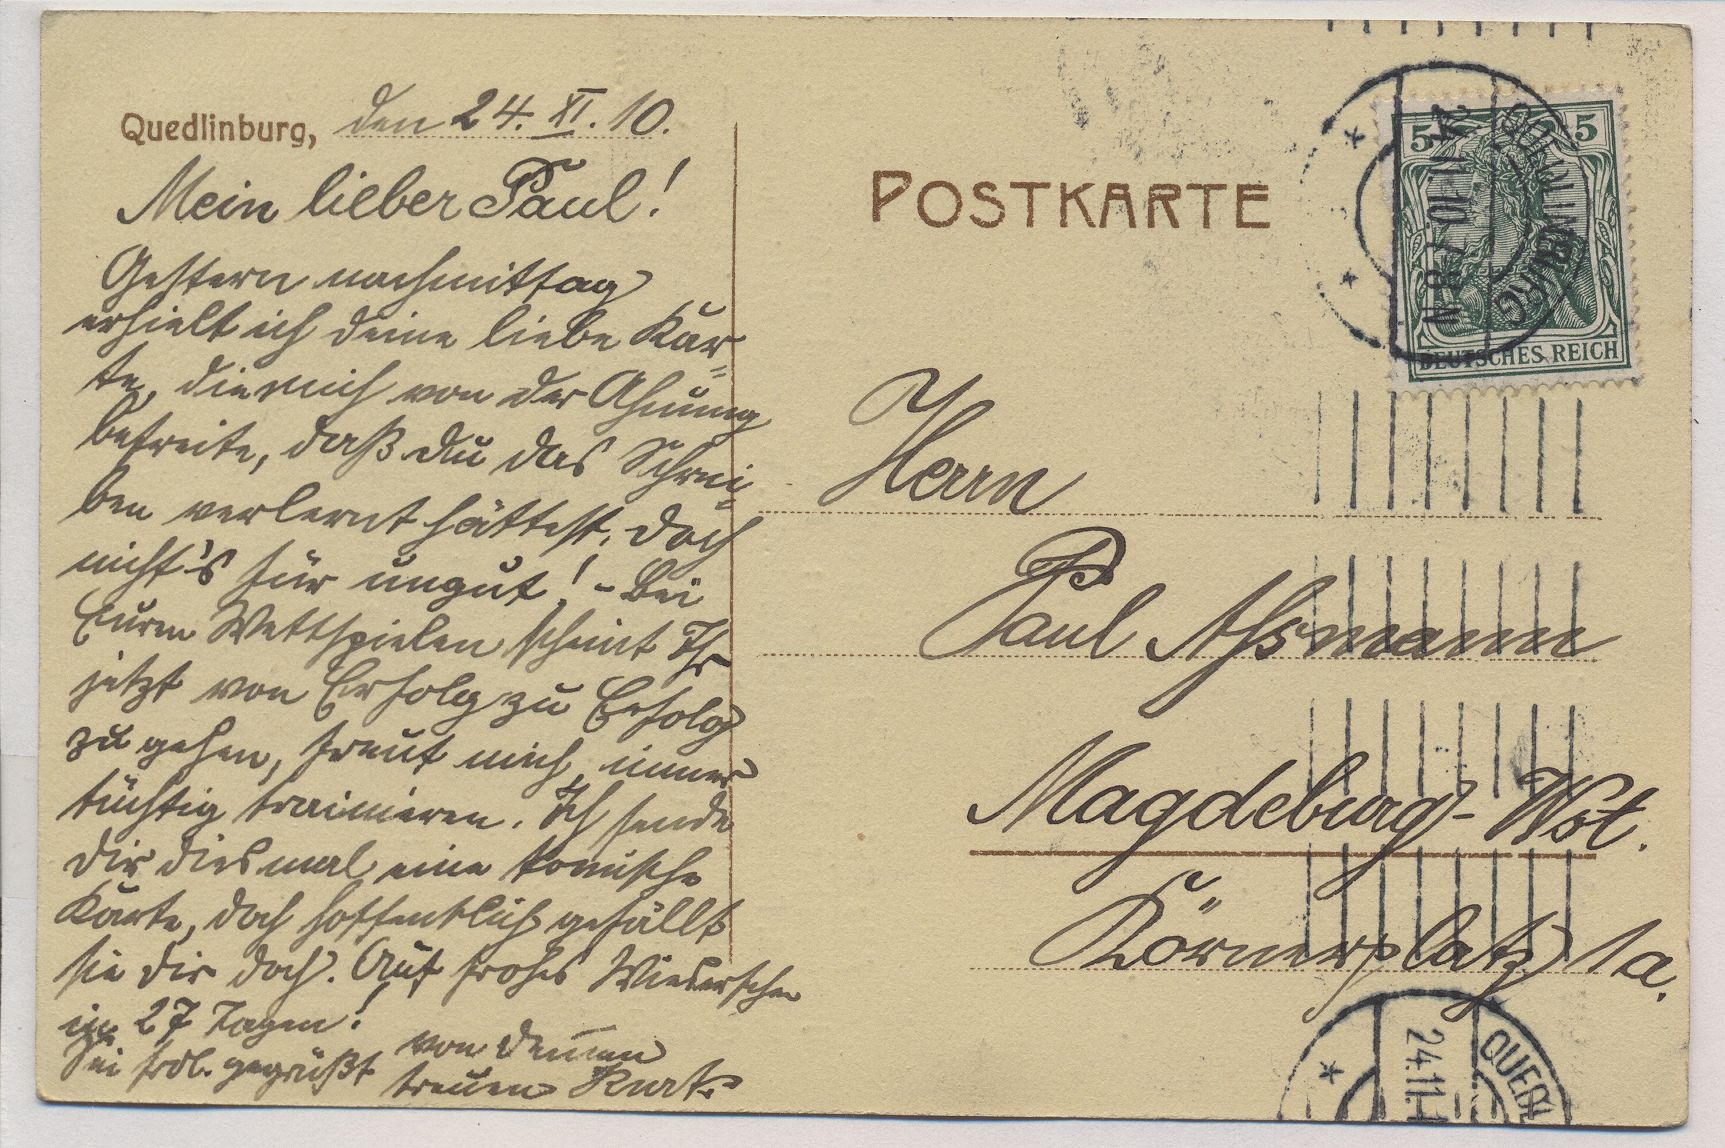 Quedlinburg, den 24. XI. 10.
Mein lieber Paul!
Gestern nachmittag
erhielt ich deine liebe Kar-
te, die mich von der Ahnung
befreite, daß du das Schrei-
ben verlernt hättest. Doch
nicht's für ungut! - Bei
Euren Wettspielen scheint Ihr
jetzt von Erfolg zu Erfolg
zu gehen, freut mich, immer
tüchtig trainieren. Ich sende
Dir diesmal eine komische
Karte, doch hoffentlich gefällt
sie Dir doch. Auf frohes Wiedersehen
in 27 Tagen!
Sei frdl. gegrüßt von deinem
treuen Kurt.
POSTKARTE
5 5
DEUTSCHES REICH
QUEDLINBURG
24.11.10.7-8N
Herrn
Paul Assmann
Magdeburg-Wst.
Körnerplatz 1a.
QUEDL
24.11.1